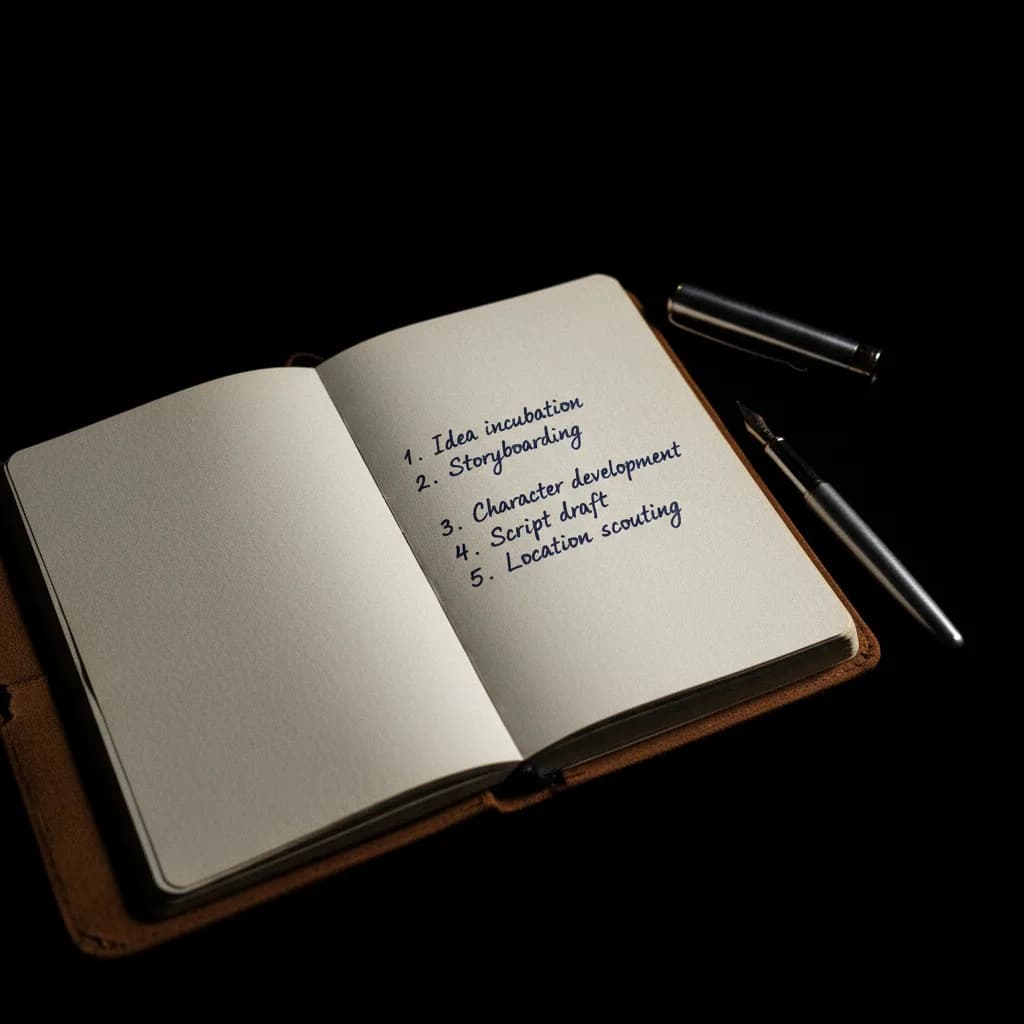 1. Idea incubation
2. Storyboarding
3. Character development
4. Script draft
5. Location scouting